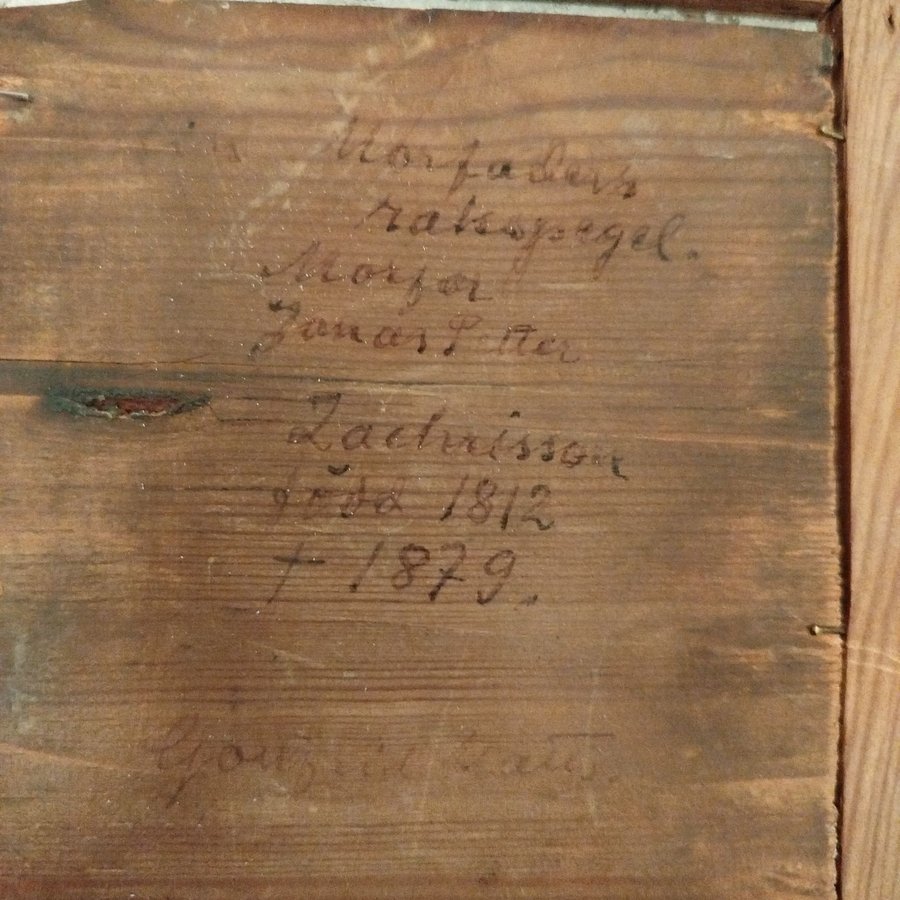 Morfaders
rakspegel.
Morfar
Jonas Petter
Zachrisson
född 1812
† 1879.